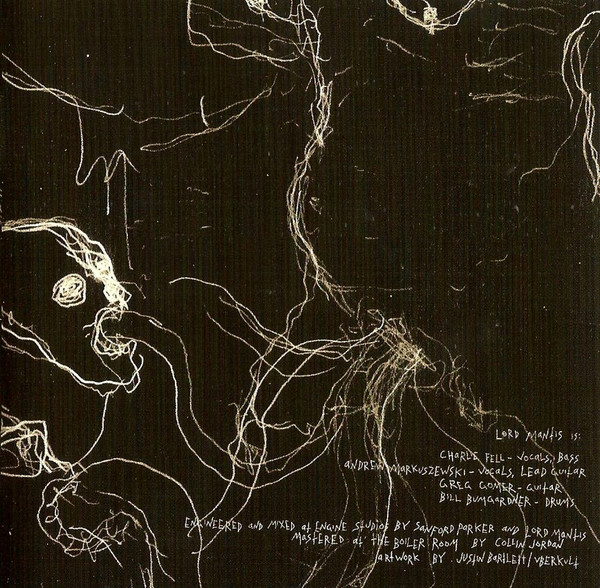 LORD MANTIS IS:
CHARLIE FELL - VOCALS, BASS
ANDREW MARKUSZEWSKI - VOCALS, LEAD GUITAR
GREG GOMER - GUITAR
BILL BUMGARDNER - DRUMS
ENGINEERED AND MIXED AT ENGINE STUDIOS BY SANFORD PARKER AND LORD MANTIS
MASTERED AT THE BOILER ROOM BY COLLIN JORDAN
ARTWORK BY JUSTIN BARTLETT/VBERKVLT